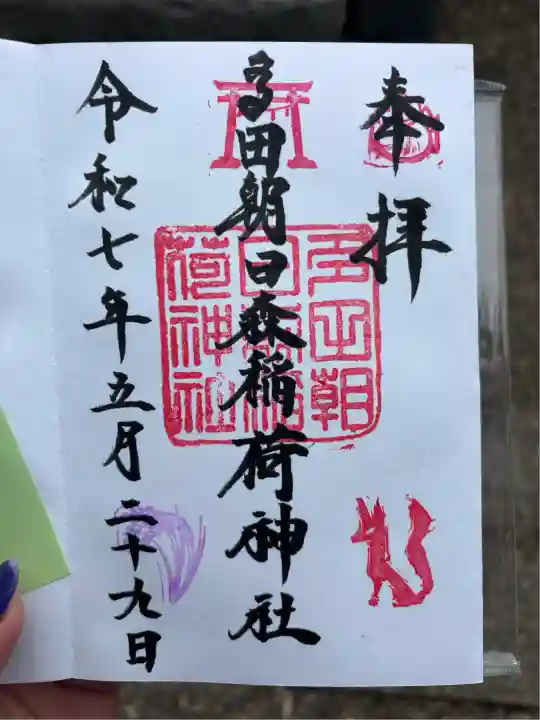 奉拝
多田朝日森稲荷神社
多田朝日森稲荷神社
令和七年五月二十九日